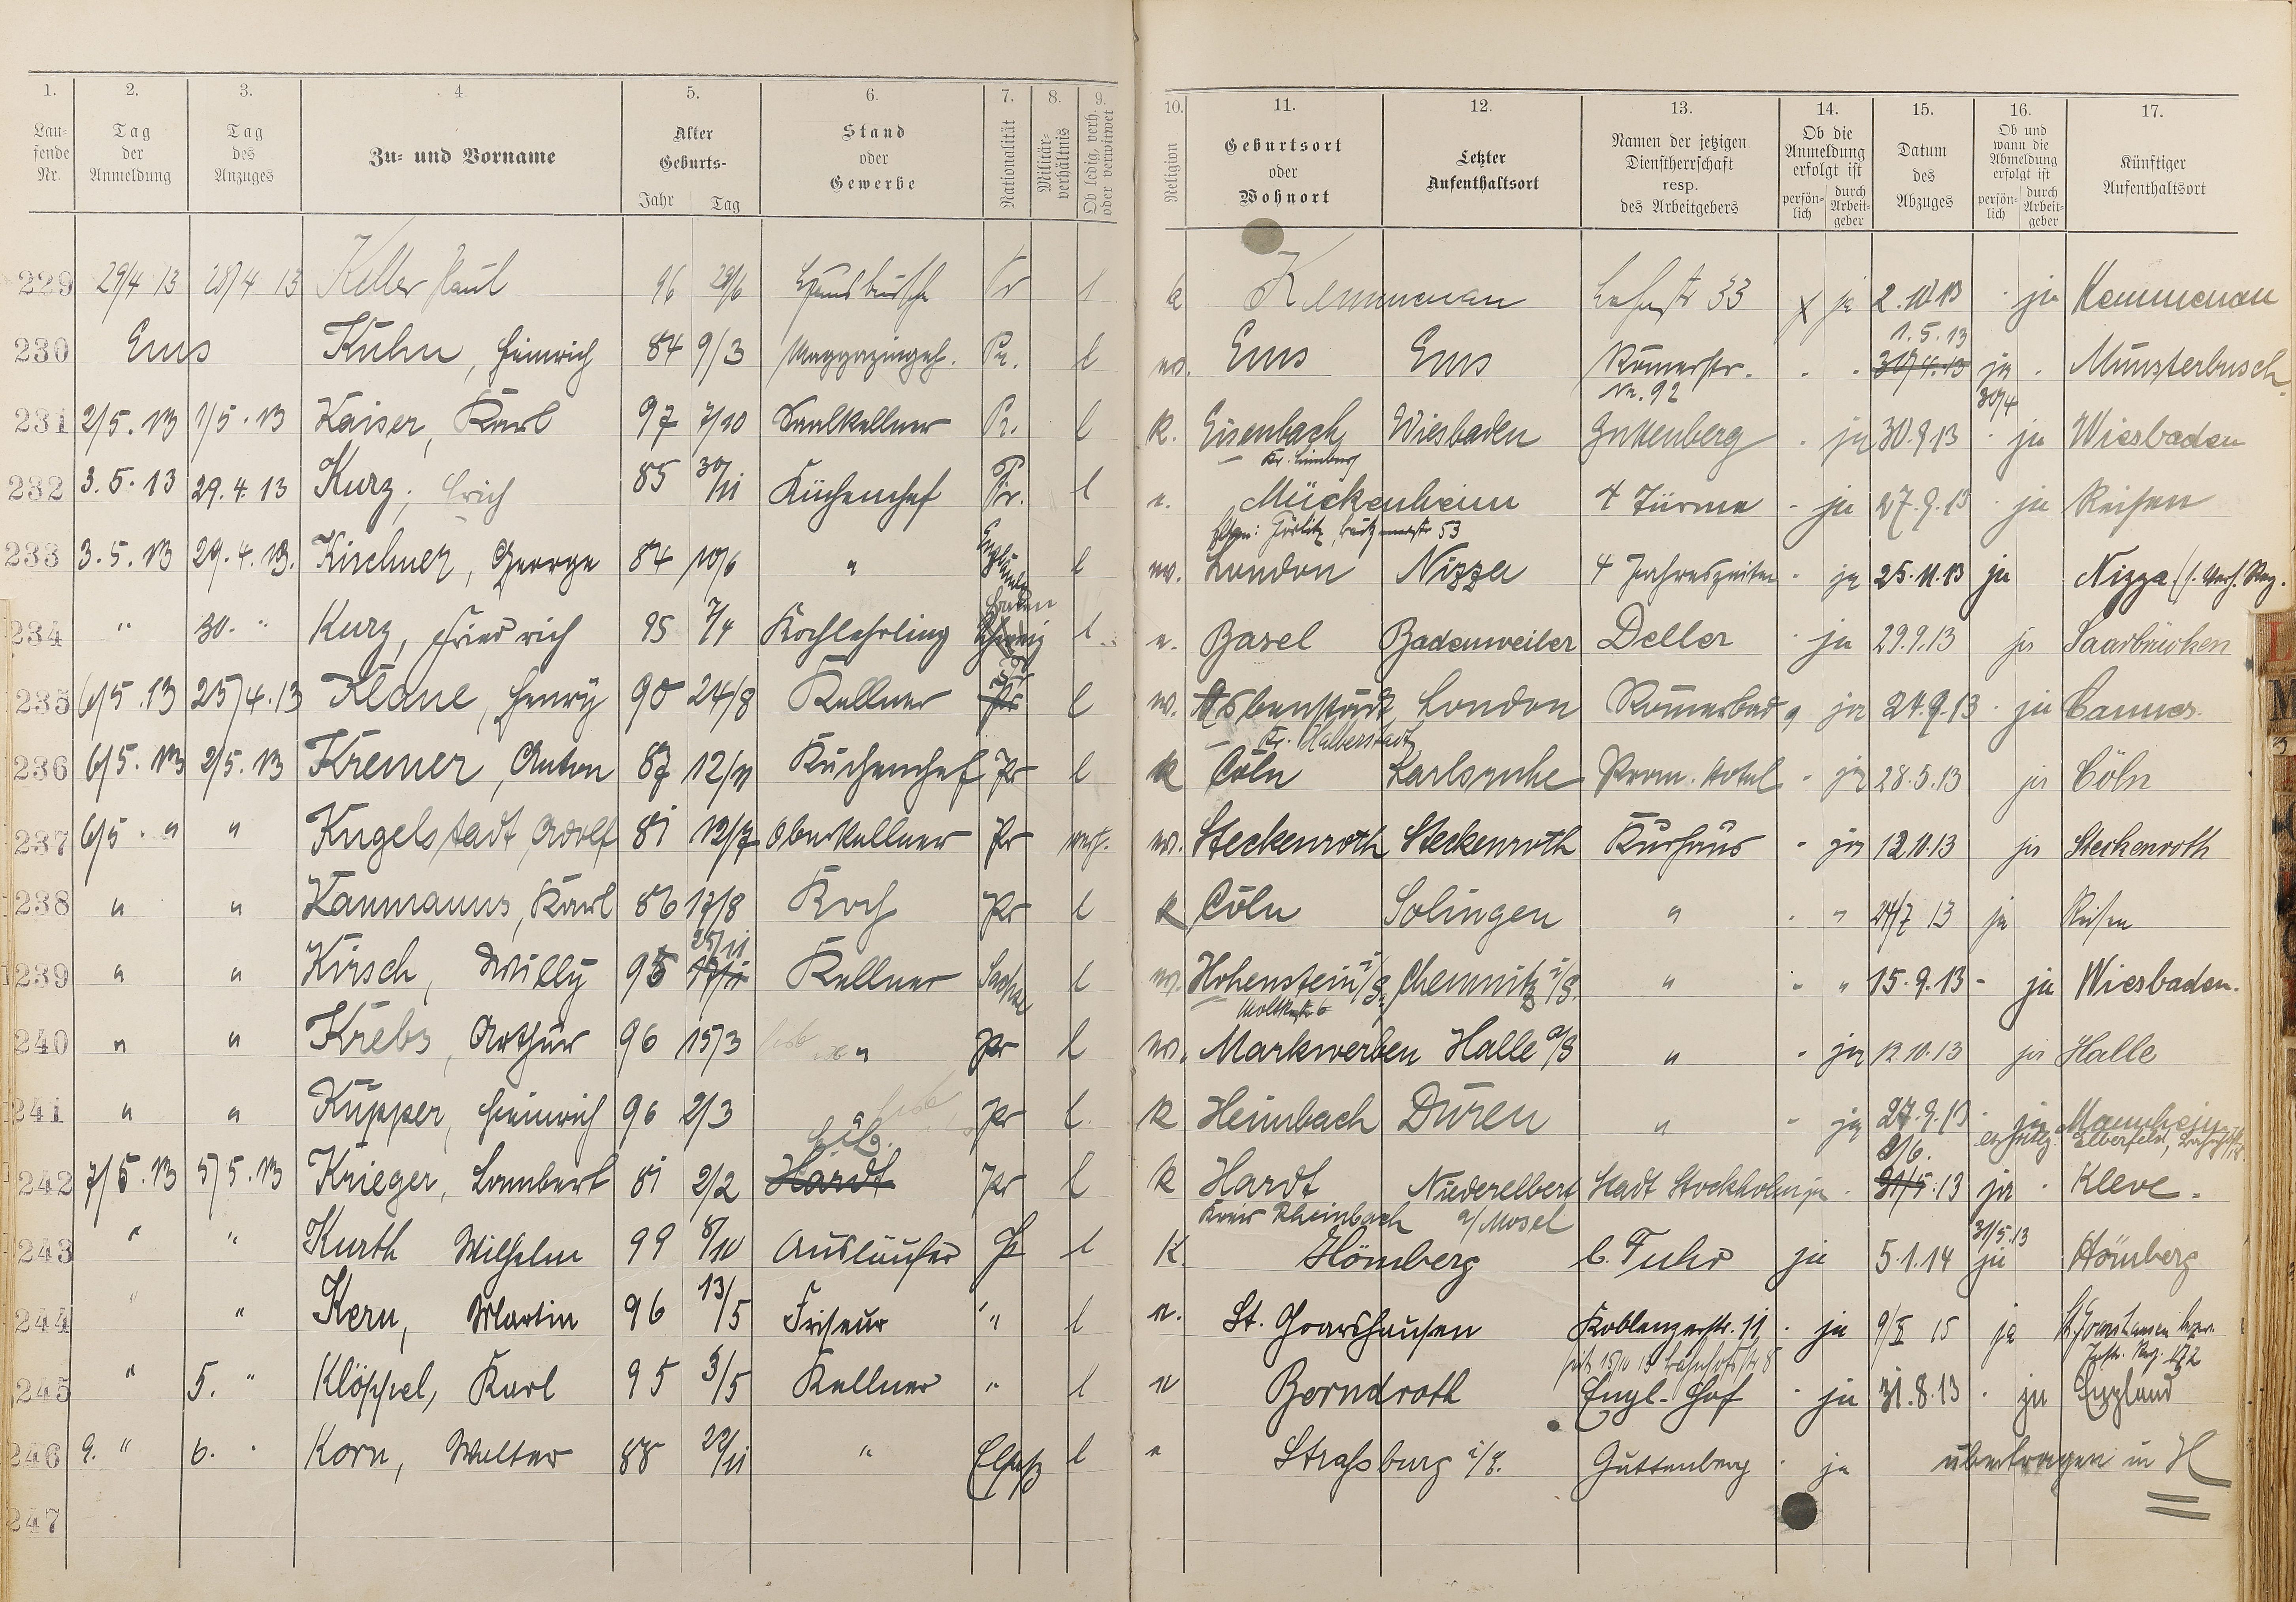 1. 2. 3. 4. 5. 6. 7. 8. 9. 10. 11. 12. 13. 14. 15. 16. 17.
Lau-
fende
Nr.
Tag
der
Anmeldung
Tag
des
Anzuges
Zu- und Vorname
Alter
Geburts-
Jahr Tag
Stand
oder
Gewerbe
Nationalität
Militär-
verhältnis
Ob ledig, verh.
oder verwitwet
Religion
Geburtsort
oder
Wohnort
Letzter
Aufenthaltsort
Namen der jetzigen
Dienstherrschaft
resp.
des Arbeitgebers
Ob die
Anmeldung
erfolgt ist
persön-
lich
durch
Arbeit-
geber
Datum
des
Abzuges
Ob und
wann die
Abmeldung
erfolgt ist
persön-
lich
durch
Arbeit-
geber
Künftiger
Aufenthaltsort
229 29/4 13 28/4 13 Keller Paul 96 29/6 Hausbursche Pr l Kemmenau 33 ja 2.10.13 ja Kemmenau
1.5.13
230 Ems Kuhn, Heinrich 84 9/3 Pr. l ev. Ems Ems Römerstr. 30/4.13 ja Münsterbusch
Nr. 92 30/4
231 2/5.13 1/5.13 Kaiser, Karl 97 7/10 Saalkellner Pr. l K. Eisenbach Wiesbaden Guttenberg ja 30.9.13 ja Wiesbaden
Kr. Limburg
232 3.5.13 29.4.13 Kurz, Erich 85 30/11 Küchenchef Pr. l e. Mückenheim 4 Türme ja 27.9.13 ja Reisen
Görlitz, 53
233 3.5.13 29.4.13. Kirchner, George 84 10/6 " Engländer l ev. London Nizza 4 Jahreszeiten ja 25.11.13 ja Nizza
Baden
234 " 30. " Kurz, Friedrich 95 7/4 Kochlehrling l e. Basel Badenweiler Deller ja 29.9.13 ja Saarbrücken
235 6/5.13 25/4.13 Klane, Henry 90 24/8 Kellner Pr l ev. Asbenstadt London Römerbad ja 24.9.13 ja Cannes.
Kr. Halberstadt
236 6/5.13 2/5.13 Kremer, Anton 87 12/11 Küchenchef Pr l K Cöln Karlsruhe Prom. Hotel ja 28.5.13 ja Cöln
237 6/5. " " Kugelstadt, Adolf 81 12/7 Oberkellner Pr verh. ev. Steckenroth Steckenroth Kurhaus ja 12.10.13 ja Steckenroth
238 " " Kanmanns, Karl 86 17/8 Koch Pr l K Cöln Solingen " " 24/7 13 ja Reisen
25/11
239 " " Kirsch, Willy 95 Kellner Sachse l ev. Hohenstein i/S. Chemnitz i/S. " " 15.9.13 - ja Wiesbaden.
Moltkestr 6
240 " " Krebs, Arthur 96 15/3 " Pr l ev. Markwerben Halle a/S " ja 12.10.13 ja Halle
241 " " Küpper, Heinrich 96 2/3 " Pr l K Heimbach Düren " ja 27.9.13 ja Mannheim
Elberfeld,
2/6.
242 7/5.13 5/5.13 Krieger, Lambert 81 2/2 Hardt Pr l K Hardt Niederelbert Stadt Stockholm ja 31/5.13 ja Kleve.
Kreis Rheinbach a/Mosel 31/5.13
243 " " Kurth Wilhelm 99 8/10 Ausläufer Pr l K. Hömberg C. Fuhr ja 5.1.14 ja Hömberg
244 " " Kern, Martin 96 13/5 Friseur " l e. St. Goarshausen Koblenzerstr. 11 ja 9/X 15 ja
seit 15/10 13 Bahnhofstr 8
245 " 5. " Klöppel, Karl 95 3/5 Kellner " l e Berndroth Engl. Hof ja 31.8.13 ja England
246 9. " 6. Korn, Walter 88 29/11 " Elsaß l e Straßburg i/E. Guttenberg ja übertragen in H
247